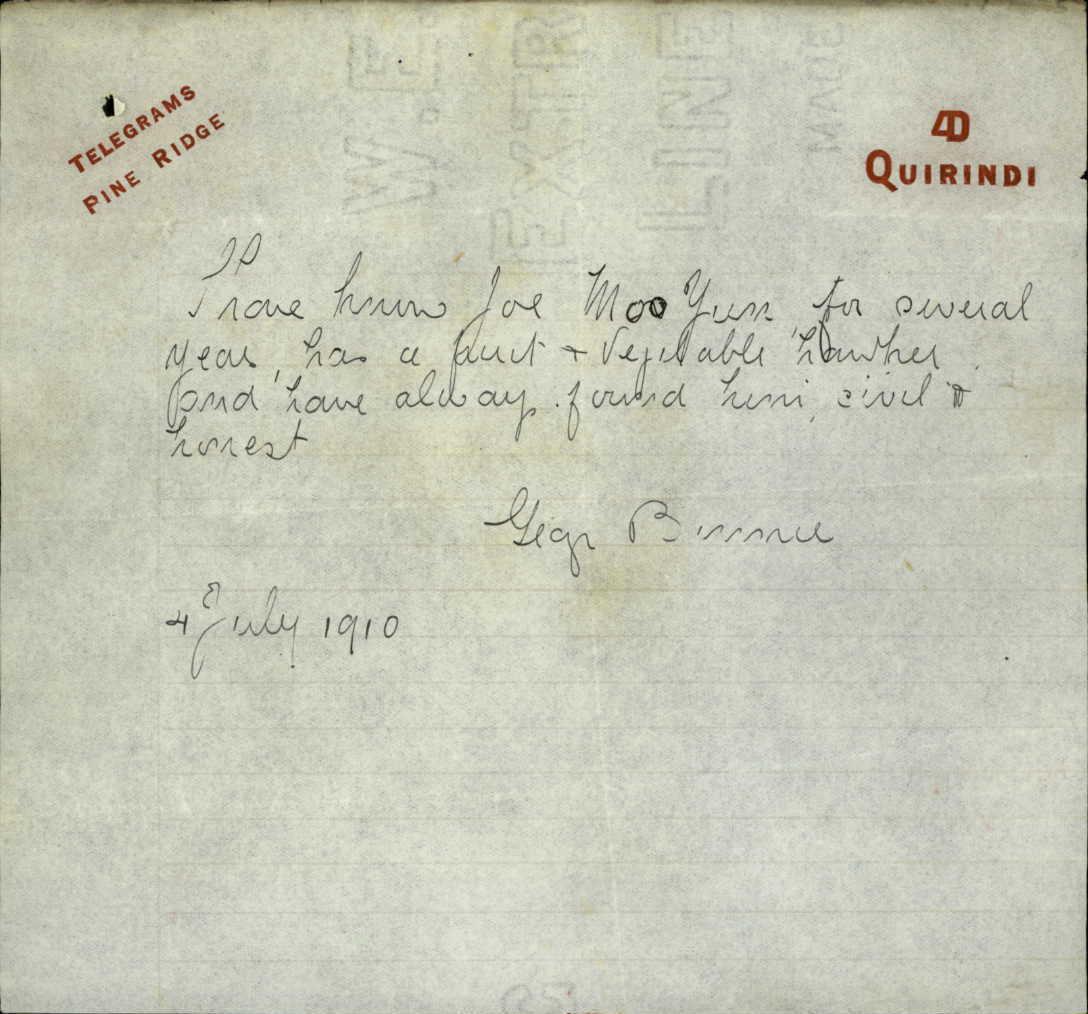 TELEGRAMS
PINE RIDGE
4D
QUIRINDI
I have known Joe Moo Yuen for several
years, has a fruit + Vegetable hawker
and have always found him civil &
honest
4 July 1910